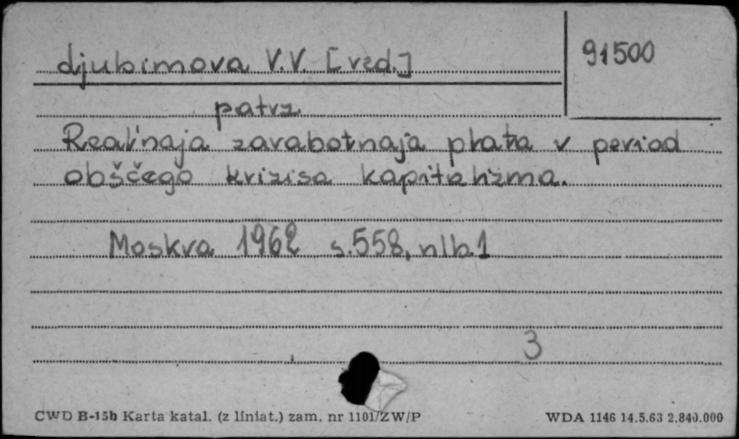 djubimova V.V. [red.]
91500
patrz
Real'naja zarabotnaja płata v period
obščego krizisa kapitalizma.
Moskva 1962 s.558, nlb.1
3
CWD B-15b Karta katal. (z liniat.) zam. nr 1101/ZW/P
WDA 1146 14.5.63 2.840.000